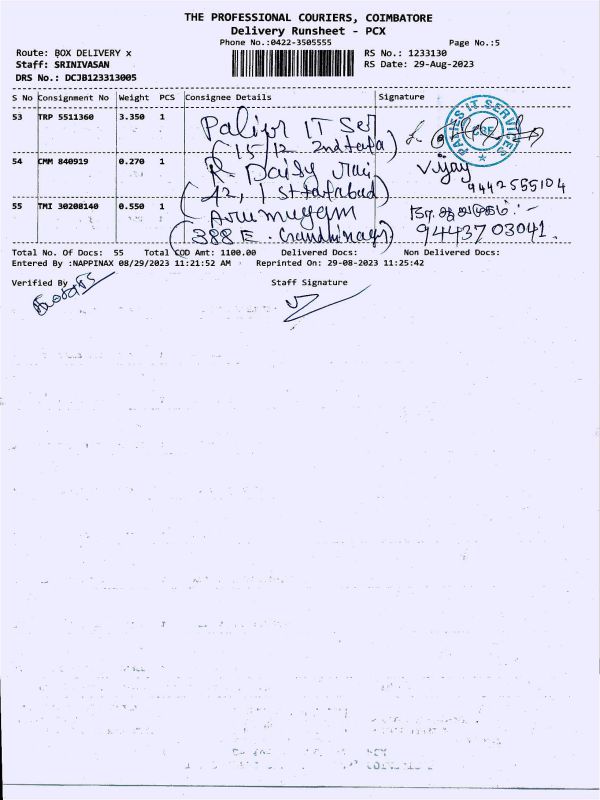 THE PROFESSIONAL COURIERS, COIMBATORE
Delivery Runsheet - PCX
Phone No.:0422-3505555
Page No.:5
Route: BOX DELIVERY x
RS No.: 1233130
Staff: SRINIVASAN
RS Date: 29-Aug-2023
DRS No.: DCJB123313005
S No Consignment No Weight PCS Consignee Details Signature
53 TRP 5511360 3.350 1 Palier IT Ser
(15/12 2nd
PALIES IT SERVICES
CBE
54 CMM 840919 0.270 1 R Daisy
(42, 1 st
Vijay
9442555104
55 TMI 30208140 0.550 1 Arumugam
(388 E. Gandhinagar)
9443703041.
Total No. Of Docs: 55 Total COD Amt: 1100.00 Delivered Docs: Non Delivered Docs:
Entered By :NAPPINAX 08/29/2023 11:21:52 AM Reprinted On: 29-08-2023 11:25:42
Verified By
Staff Signature